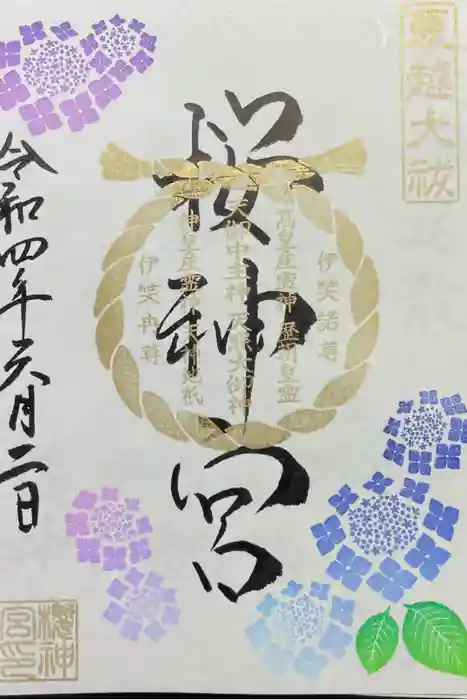 夏越大祓
伊奘諾尊
高皇産霊神 歴朝皇霊
天御中主神 天照大御神
神皇産霊神 天神地祇
伊奘冉尊
桜神宮
令和四年六月二日
櫻神
宮印